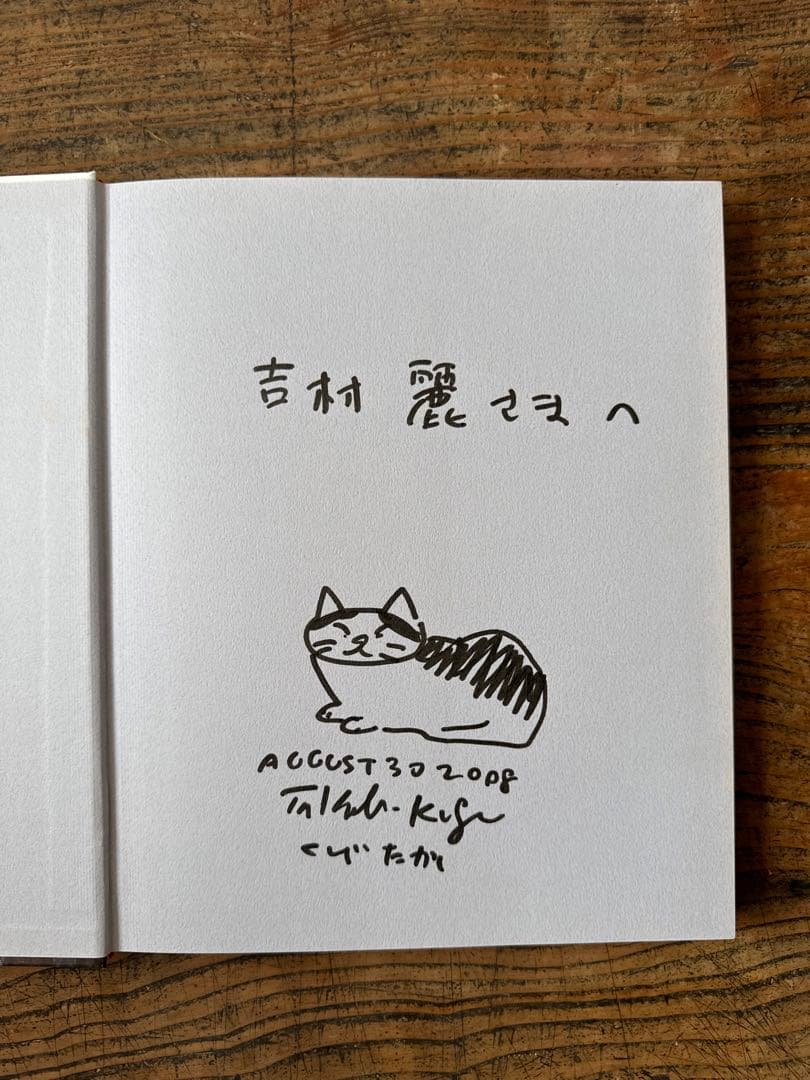 吉村 麗さまへ
AUGUST 30 2008
くげたか